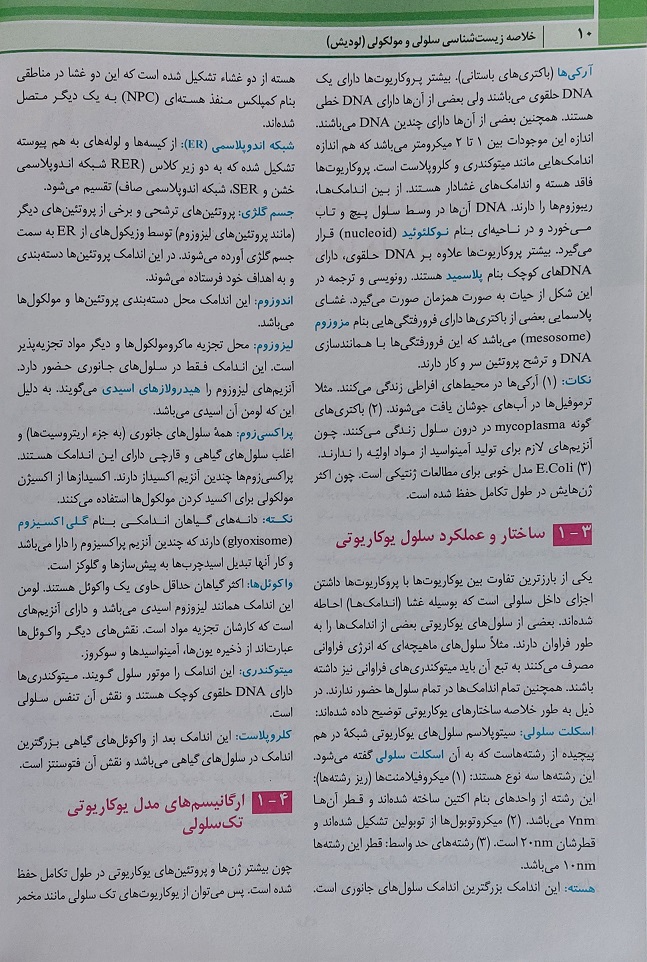 ۱۰ خلاصه زیست‌شناسی سلولی و مولکولی (لودیش)
آرکی‌ها (باکتری‌های باستانی). بیشتر پروکاریوت‌ها دارای یک
DNA حلقوی می‌باشند ولی بعضی از آن‌ها دارای DNA خطی
هستند. همچنین بعضی از آن‌ها دارای چندین DNA می‌باشند.
اندازه این موجودات بین ۱ تا ۲ میکرومتر می‌باشد که هم اندازه
اندامک‌هایی مانند میتوکندری و کلروپلاست است. پروکاریوت‌ها
فاقد هسته و اندامک‌های غشادار هستند. از بین اندامک‌ها،
ریبوزوم‌ها را دارند. DNA آن‌ها در وسط سلول پیچ و تاب
می‌خورد و در ناحیه‌ای بنام نوکلئوئید (nucleoid) قرار
می‌گیرد. بیشتر پروکاریوت‌ها علاوه بر DNA حلقوی، دارای
DNAهای کوچک بنام پلاسمید هستند. رونویسی و ترجمه در
این شکل از حیات به صورت همزمان صورت می‌گیرد. غشای
پلاسمایی بعضی از باکتری‌ها دارای فرورفتگی‌هایی بنام مزوزوم
(mesosome) می‌باشد که این فرورفتگی‌ها با همانندسازی
DNA و ترشح پروتئین سر و کار دارند.
نکات: (۱) آرکی‌ها در محیط‌های افراطی زندگی می‌کنند. مثلا
ترموفیل‌ها در آب‌های جوشان یافت می‌شوند. (۲) باکتری‌های
گونه mycoplasma در درون سلول زندگی می‌کنند. چون
آنزیم‌های لازم برای تولید آمینواسید از مواد اولیّه را ندارند.
(۳) E.Coli مدل خوبی برای مطالعات ژنتیکی است. چون اکثر
ژن‌هایش در طول تکامل حفظ شده است.
۱-۳ ساختار و عملکرد سلول یوکاریوتی
یکی از بارزترین تفاوت بین یوکاریوت‌ها با پروکاریوت‌ها داشتن
اجزای داخل سلولی است که بوسیله غشا (اندامک‌ها) احاطه
شده‌اند. بعضی از سلول‌های یوکاریوتی بعضی از اندامک‌ها را به
طور فراوان دارند. مثلاً سلول‌های ماهیچه‌ای که انرژی فراوانی
مصرف می‌کنند به تبع آن باید میتوکندری‌های فراوانی نیز داشته
باشند. همچنین تمام اندامک‌ها در تمام سلول‌ها حضور ندارند. در
ذیل به طور خلاصه ساختارهای یوکاریوتی توضیح داده شده‌اند:
اسکلت سلولی: سیتوپلاسم سلول‌های یوکاریوتی شبکهٔ در هم
پیچیده از رشته‌هاست که به آن اسکلت سلولی گفته می‌شود.
این رشته‌ها سه نوع هستند: (۱) میکروفیلامنت‌ها (ریز رشته‌ها):
این رشته از واحدهای بنام اکتین ساخته شده‌اند و قطر آن‌ها
۷nm می‌باشد. (۲) میکروتوبول‌ها از توبولین تشکیل شده‌اند و
قطرشان ۲۰nm است. (۳) رشته‌های حد واسط: قطر این رشته‌ها
۱۰nm می‌باشد.
هسته: این اندامک بزرگترین اندامک سلول‌های جانوری است.
هسته از دو غشاء تشکیل شده است که این دو غشا در مناطقی
بنام کمپلکس منفذ هسته‌ای (NPC) به یک دیگر متصل
شده‌اند.
شبکه اندوپلاسمی (ER): از کیسه‌ها و لوله‌های به هم پیوسته
تشکیل شده که به دو زیر کلاس (RER شبکه اندوپلاسمی
خشن و SER، شبکه اندوپلاسمی صاف) تقسیم می‌شود.
جسم گلژی: پروتئین‌های ترشحی و برخی از پروتئین‌های دیگر
(مانند پروتئین‌های لیزوزوم) توسط وزیکول‌های از ER به سمت
جسم گلژی آورده می‌شوند. در این اندامک پروتئین‌ها دسته‌بندی
و به اهداف خود فرستاده می‌شوند.
اندوزوم: این اندامک محل دسته‌بندی پروتئین‌ها و مولکول‌ها
می‌باشد.
لیزوزوم: محل تجزیه ماکرومولکول‌ها و دیگر مواد تجزیه‌پذیر
است. این اندامک فقط در سلول‌های جانوری حضور دارد.
آنزیم‌های لیزوزوم را هیدرولازهای اسیدی می‌گویند. به دلیل
این که لومن آن اسیدی می‌باشد.
پراکسی‌زوم: همهٔ سلول‌های جانوری (به جزء اریتروسیت‌ها) و
اغلب سلول‌های گیاهی و قارچی دارای این اندامک هستند.
پراکسی‌زوم‌ها چندین آنزیم اکسیداز دارند. اکسیدازها از اکسیژن
مولکولی برای اکسید کردن مولکول‌ها استفاده می‌کنند.
نکته: دانه‌های گیاهان اندامکی بنام گلی‌اکسیزوم
(glyoxisome) دارند که چندین آنزیم پراکسیزوم را دارا می‌باشد
و کار آنها تبدیل اسیدچرب‌ها به پیش‌سازها و گلوکز است.
واکوئل‌ها: اکثر گیاهان حداقل حاوی یک واکوئل هستند. لومن
این اندامک همانند لیزوزوم اسیدی می‌باشد و دارای آنزیم‌های
است که کارشان تجزیه مواد است. نقش‌های دیگر واکوئل‌ها
عبارت‌اند از ذخیره یون‌ها، آمینواسیدها و سوکروز.
میتوکندری: این اندامک را موتور سلول گویند. میتوکندری‌ها
دارای DNA حلقوی کوچک هستند و نقش آن تنفس سلولی
است.
کلروپلاست: این اندامک بعد از واکوئل‌های گیاهی بزرگترین
اندامک در سلول‌های گیاهی می‌باشد و نقش آن فتوسنتز است.
۱-۴ ارگانیسم‌های مدل یوکاریوتی
تک‌سلولی
چون بیشتر ژن‌ها و پروتئین‌های یوکاریوتی در طول تکامل حفظ
شده است. پس می‌توان از یوکاریوت‌های تک سلولی مانند مخمر